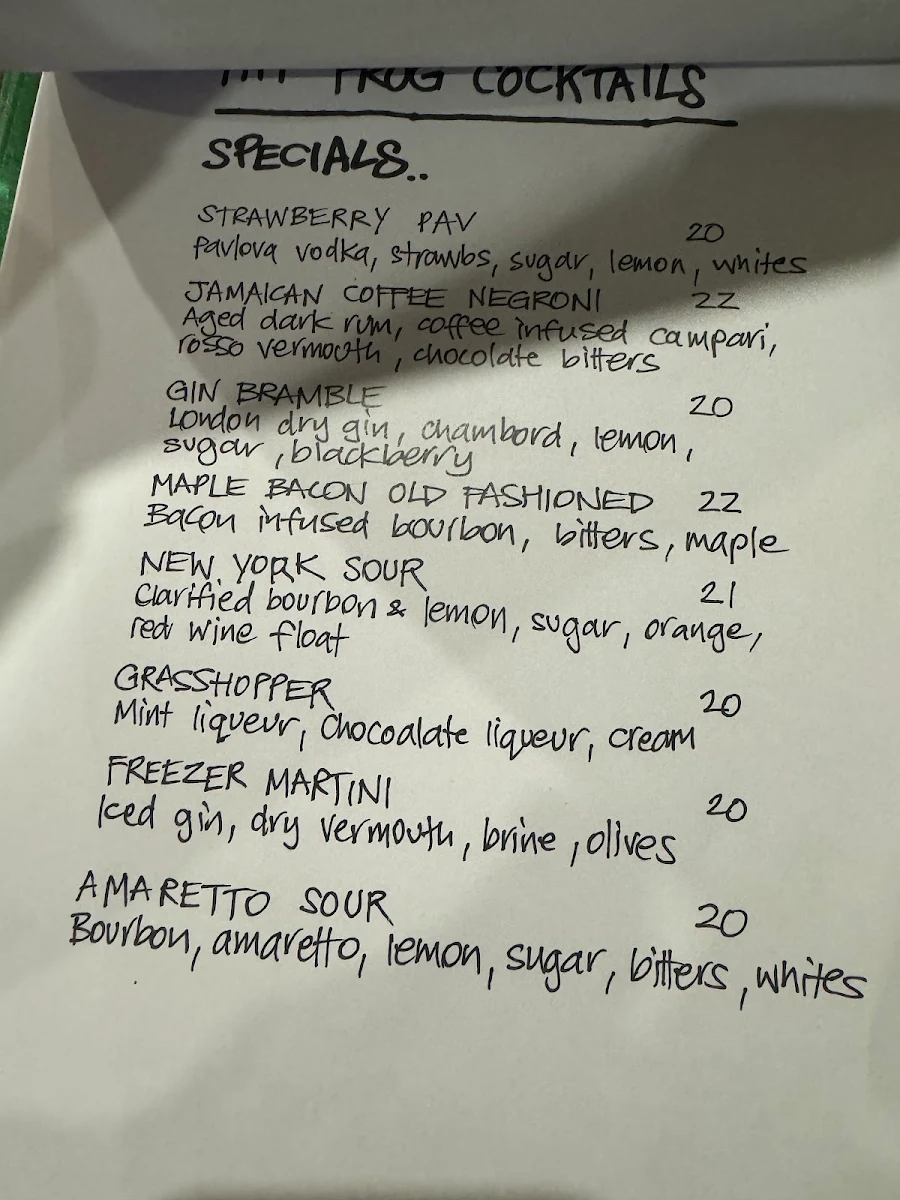 FROG COCKTAILS
SPECIALS..
STRAWBERRY PAV 20
Pavlova vodka, strawbs, sugar, lemon, whites
JAMAICAN COFFEE NEGRONI 22
Aged dark rum, coffee infused campari,
rosso vermouth, chocolate bitters
GIN BRAMBLE 20
London dry gin, chambord, lemon,
sugar, blackberry
MAPLE BACON OLD FASHIONED 22
Bacon infused bourbon, bitters, maple
NEW YORK SOUR 21
Clarified bourbon & lemon, sugar, orange,
red wine float
GRASSHOPPER 20
Mint liqueur, Chocoalate liqueur, cream
FREEZER MARTINI 20
Iced gin, dry vermouth, brine, olives
AMARETTO SOUR 20
Bourbon, amaretto, lemon, sugar, bitters, whites